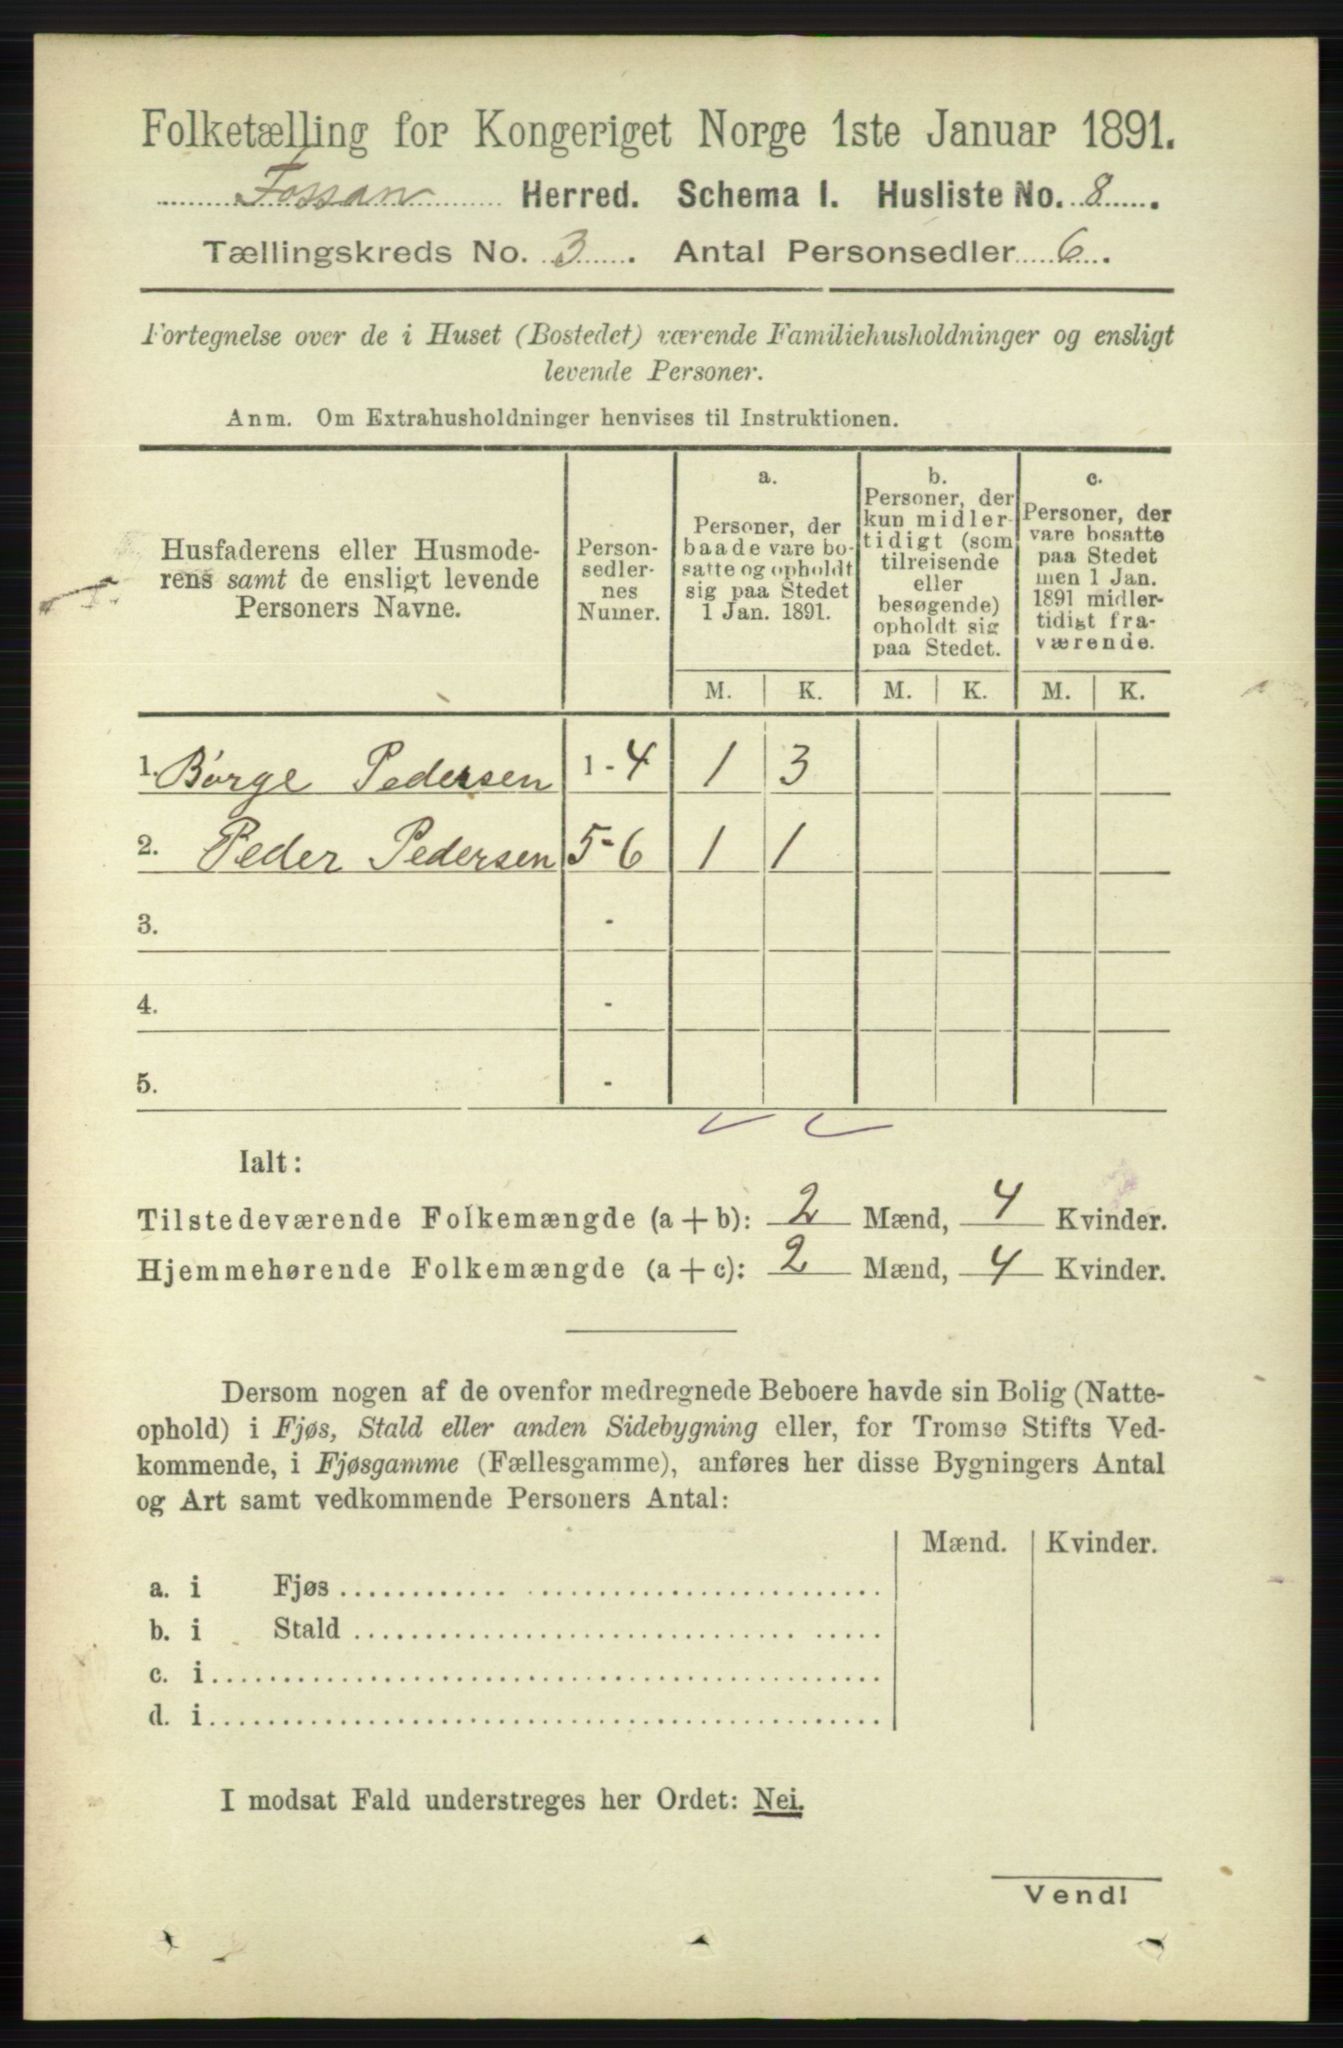 Folketælling for Kongeriget Norge 1ste Januar 1891.
Fossan Herred. Schema I. Husliste No. 8.
Tællingskreds No. 3. Antal Personsedler 6.
Fortegnelse over de i Huset (Bostedet) værende Familiehusholdninger og ensligt
levende Personer.
Anm. Om Extrahusholdninger henvises til Instruktionen.
Husfaderens eller Husmode-
rens samt de ensligt levende
Personers Navne.
Person-
sedler-
nes
Numer.
a.
Personer, der
baade vare bo-
satte og opholdt
sig paa Stedet
1 Jan. 1891.
b.
Personer, der
kun midler-
tidigt (som
tilreisende
eller
besøgende)
opholdt sig
paa Stedet.
c.
Personer, der
vare bosatte
paa Stedet
men 1 Jan.
1891 midler-
tidigt fra-
værende.
M. K. M. K. M. K.
1. Børge Pedersen 1-4 1 3
2. Peder Pedersen 5-6 1 1
3. -
4. -
5. -
Ialt:
Tilstedeværende Folkemængde (a+b): 2 Mænd, 4 Kvinder.
Hjemmehørende Folkemængde (a+c): 2 Mænd, 4 Kvinder.
Dersom nogen af de ovenfor medregnede Beboere havde sin Bolig (Natte-
ophold) i Fjøs, Stald eller anden Sidebygning eller, for Tromsø Stifts Ved-
kommende, i Fjøsgamme (Fællesgamme), anføres her disse Bygningers Antal
og Art samt vedkommende Personers Antal:
Mænd. Kvinder.
a. i Fjøs
b. i Stald
c. i
d. i
I modsat Fald understreges her Ordet: Nei.
Vend!